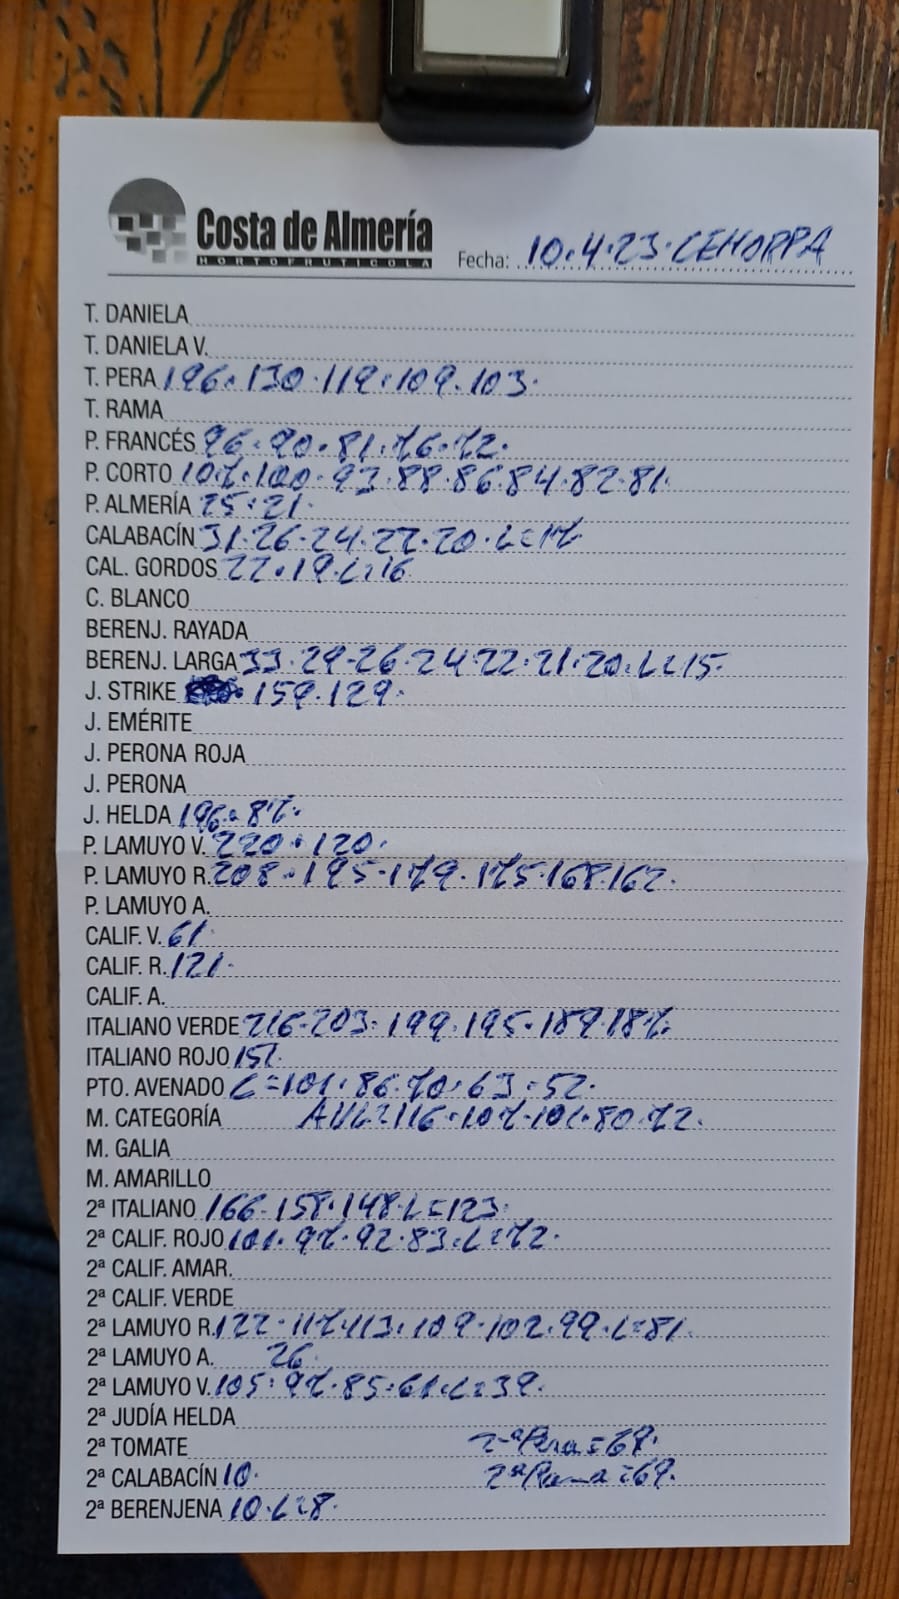 Costa de Almería
HORTOFRUTICOLA
Fecha: 10.4.23. CEHORPA
T. DANIELA
T. DANIELA V.
T. PERA 196. 130. 119. 109. 103.
T. RAMA
P. FRANCÉS 96. 90. 81. 76. 72.
P. CORTO 107. 100. 93. 88. 86. 84. 82. 81.
P. ALMERÍA 25. 21.
CALABACÍN 31. 26. 24. 22. 20. L=17
CAL. GORDOS 22. 19. L=16
C. BLANCO
BERENJ. RAYADA
BERENJ. LARGA 33. 29. 26. 24. 22. 21. 20. L=15.
J. STRIKE 159. 129.
J. EMÉRITE
J. PERONA ROJA
J. PERONA
J. HELDA 196. 87.
P. LAMUYO V. 220. 120.
P. LAMUYO R. 208. 195. 179. 175. 168. 162.
P. LAMUYO A.
CALIF. V. 61
CALIF. R. 121.
CALIF. A.
ITALIANO VERDE 216. 203. 199. 195. 189. 187
ITALIANO ROJO 151.
PTO. AVENADO L=101. 86. 70. 63. 52.
M. CATEGORÍA 116. 107. 101. 80. 72.
M. GALIA
M. AMARILLO
2ª ITALIANO 166. 158. 148. L=123.
2ª CALIF. ROJO 101. 97. 92. 83. L=72.
2ª CALIF. AMAR.
2ª CALIF. VERDE
2ª LAMUYO R. 122. 117. 113. 109. 102. 99. L=81.
2ª LAMUYO A. 26.
2ª LAMUYO V. 105. 97. 85. 61. L=39.
2ª JUDÍA HELDA
2ª TOMATE 2ª Pera=69.
2ª CALABACÍN 10. 2ª Rama=69.
2ª BERENJENA 10. L=8.